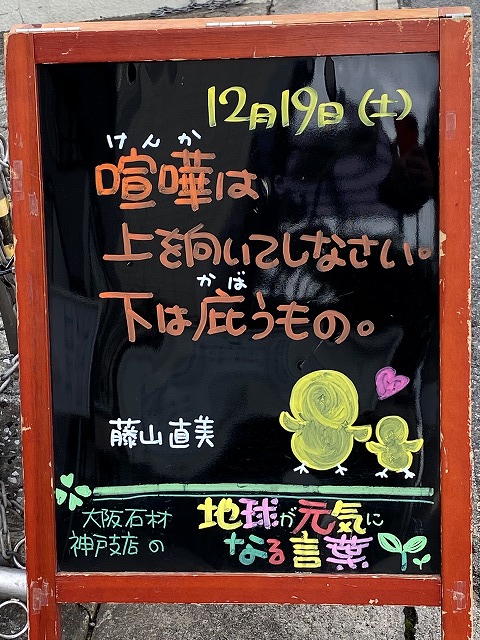 12月19日(土)
けんか
喧嘩は
上を向いてしなさい。
かば
下は庇うもの。
藤山直美
大阪石材 地球が元気に
神戸支店の なる言葉